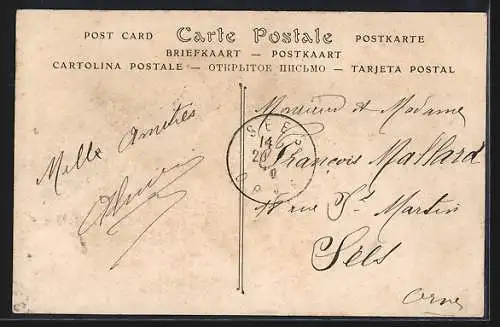 POST CARD Carte Postale POSTKARTE
BRIEFKAART — POSTKAART
CARTOLINA POSTALE — ОТКРЫТОЕ ПИСЬМО — TARJETA POSTAL
Mille Amitiés
Monsieur et Madame
François Mallard
rue St Martin
Sées
Orne
SEES
14